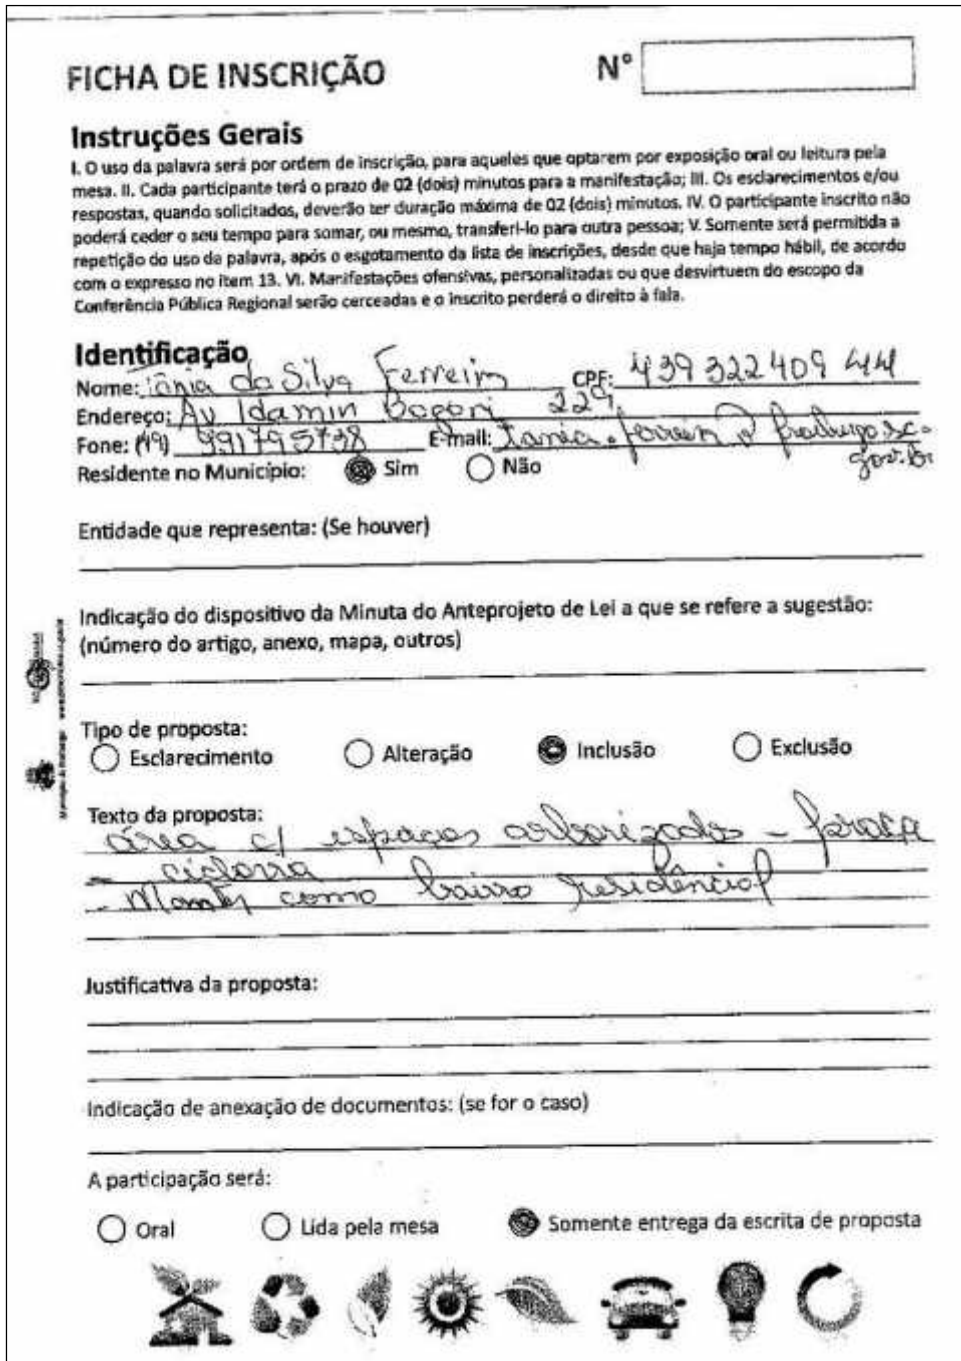 FICHA DE INSCRIÇÃO
Nº
Instruções Gerais
I. O uso da palavra será por ordem de inscrição, para aqueles que optarem por exposição oral ou leitura pela
mesa. II. Cada participante terá o prazo de 02 (dois) minutos para a manifestação; III. Os esclarecimentos e/ou
respostas, quando solicitados, deverão ter duração máxima de 02 (dois) minutos. IV. O participante inscrito não
poderá ceder o seu tempo para somar, ou mesmo, transferi-lo para outra pessoa; V. Somente será permitida a
repetição do uso da palavra, após o esgotamento da lista de inscrições, desde que haja tempo hábil, de acordo
com o expresso no item 13. VI. Manifestações ofensivas, personalizadas ou que desvirtuem do escopo da
Conferência Pública Regional serão cerceadas e o inscrito perderá o direito à fala.
Identificação
Nome: Tânia da Silva Ferreira CPF: 439 322 409 44
Endereço: Av Idamin 229
Fone: (49) 991795738 E-mail:
gov.br
Residente no Município: Sim Não
Entidade que representa: (Se houver)
Indicação do dispositivo da Minuta do Anteprojeto de Lei a que se refere a sugestão:
(número do artigo, anexo, mapa, outros)
Tipo de proposta:
Esclarecimento Alteração Inclusão Exclusão
Texto da proposta:
área c/ espaços arborizados - praça
- ciclovia
- Manter como bairro residêncial
Justificativa da proposta:
Indicação de anexação de documentos: (se for o caso)
A participação será:
Oral Lida pela mesa Somente entrega da escrita de proposta